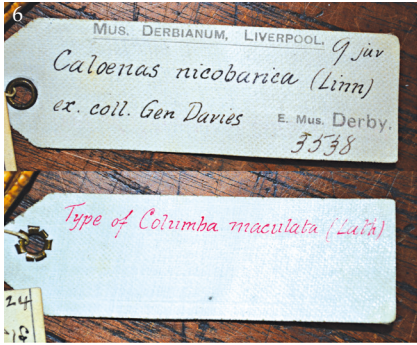 6
MUS. DERBIANUM, LIVERPOOL.
9 juv
Caloenas nicobarica (Linn)
ex. coll. Gen Davies
E. MUS. DERBY.
3538
Type of Columba maculata (Lath)
24